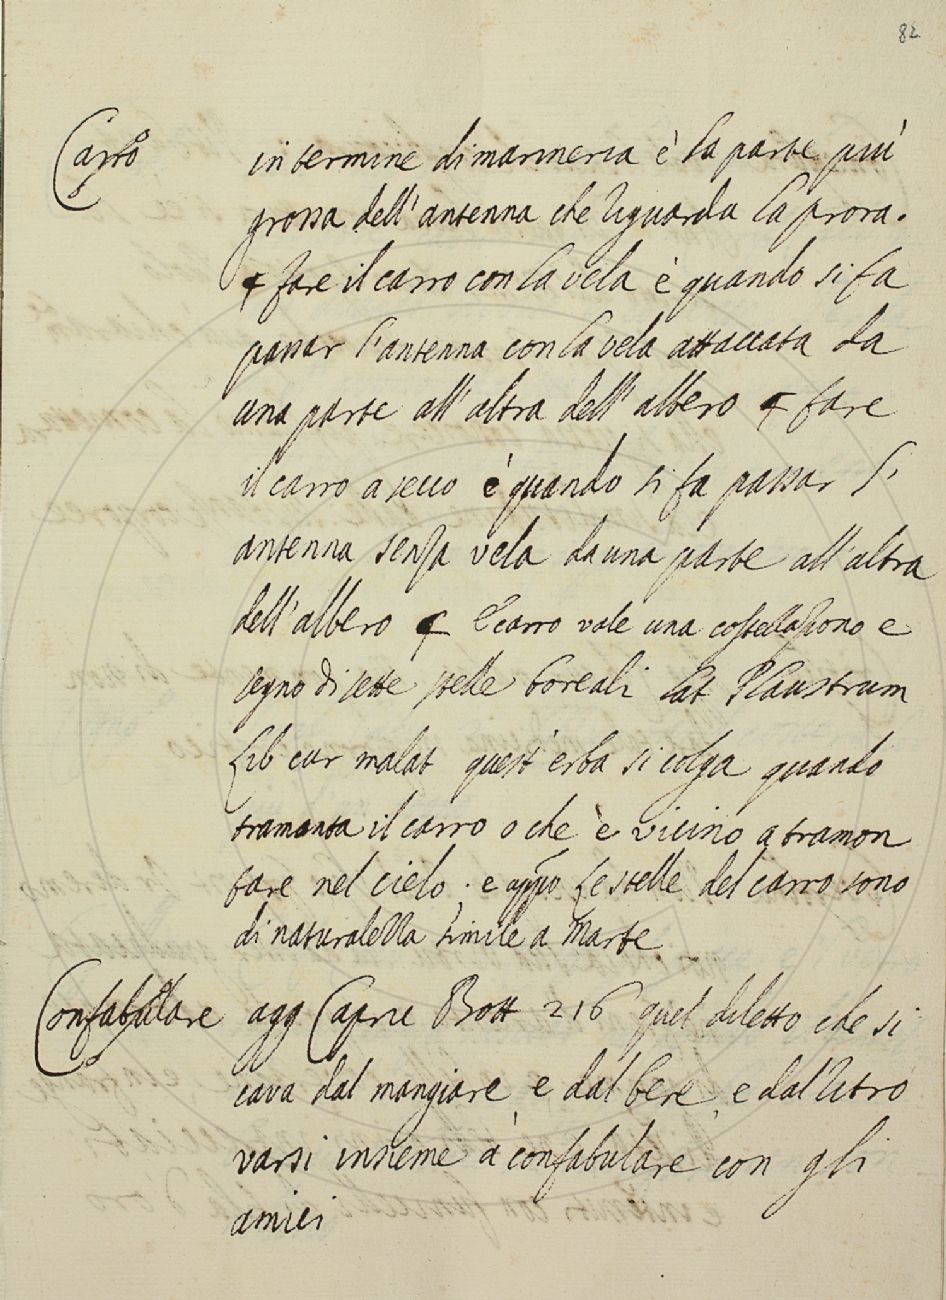 82
Carro in termine di marineria è la parte più
grossa dell'antenna che riguarda la prora.
¶ fare il carro con la vela è quando si fa
passar l'antenna con la vela attaccata da
una parte all'altra dell'albero ¶ fare
il carro a secco è quando si fa passar l'
antenna senza vela da una parte all'altra
dell'albero ¶ E carro vale una costellazione e
segno di sette stelle boreali lat Plaustrum
Lib cur malat quest'erba si colga quando
tramonta il carro o che è vicino a tramon
tare nel cielo. e appo le stelle del carro sono
di naturalezza simile a Marte
Confabulare agg Capric Bott 216 quel diletto che si
cava dal mangiare e dal bere, e dal ritro
varsi insieme à confabulare con gli
amici